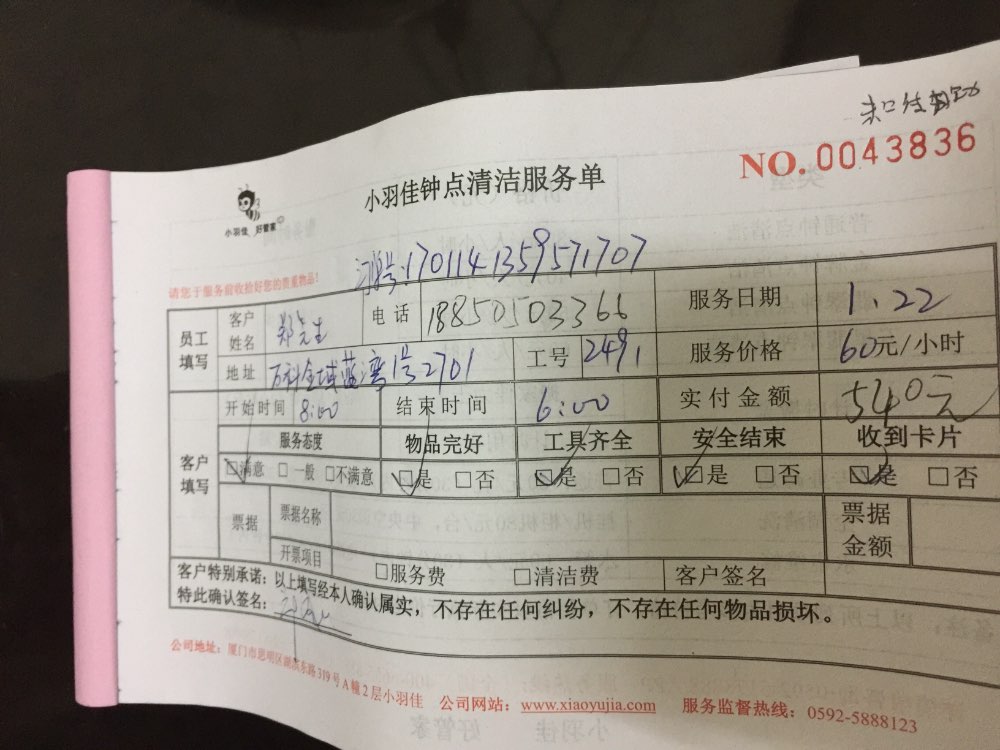 NO.0043836
小羽佳钟点清洁服务单
小羽佳 好管家
1701141359571707
请您于服务前收拾好您的贵重物品!
员工填写 客户姓名 郑先生 电话 18850503366 服务日期 1.22
地址 万科金域蓝湾1号2701 工号 2491 服务价格 60元/小时
客户填写 开始时间 8:00 结束时间 6:00 实付金额 540元
服务态度 物品完好 工具齐全 安全结束 收到卡片
□满意 □一般 □不满意 □是 □否 □是 □否 □是 □否 □是 □否
票据 票据名称 票据金额
开票项目 □服务费 □清洁费 客户签名
客户特别承诺：以上填写经本人确认属实，不存在任何纠纷，不存在任何物品损坏。
特此确认签名：
公司地址：厦门市思明区湖滨东路319号A幢2层小羽佳 公司网站：www.xiaoyujia.com 服务监督热线：0592-5888123